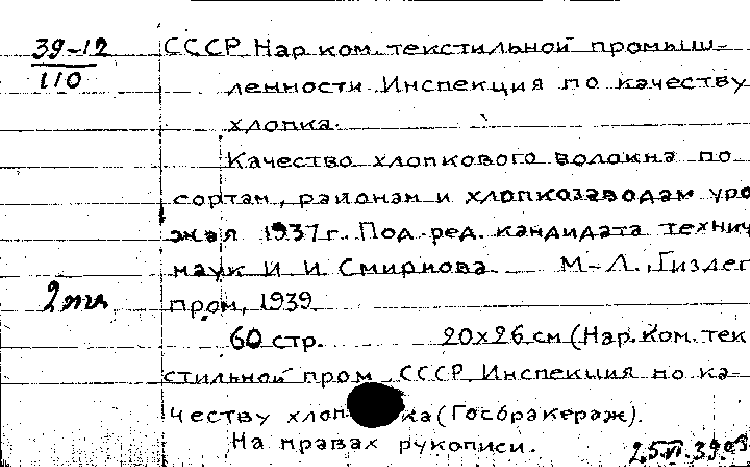 39-12
110
СССР Нар.ком.текстильной промыш-
ленности Инспекция по качеству
хлопка.
Качество хлопкового волокна по
сортам, районам и хлопкозаводам уро
жая 1937 г. Под ред. кандидата технич
наук И И Смирнова М-Л., Гизлег
пром, 1939.
60 стр. 20x26 см (Нар.ком.тек
стильной пром. СССР Инспекция по ка-
честву хлопка (Госбракераж).
На правах рукописи.